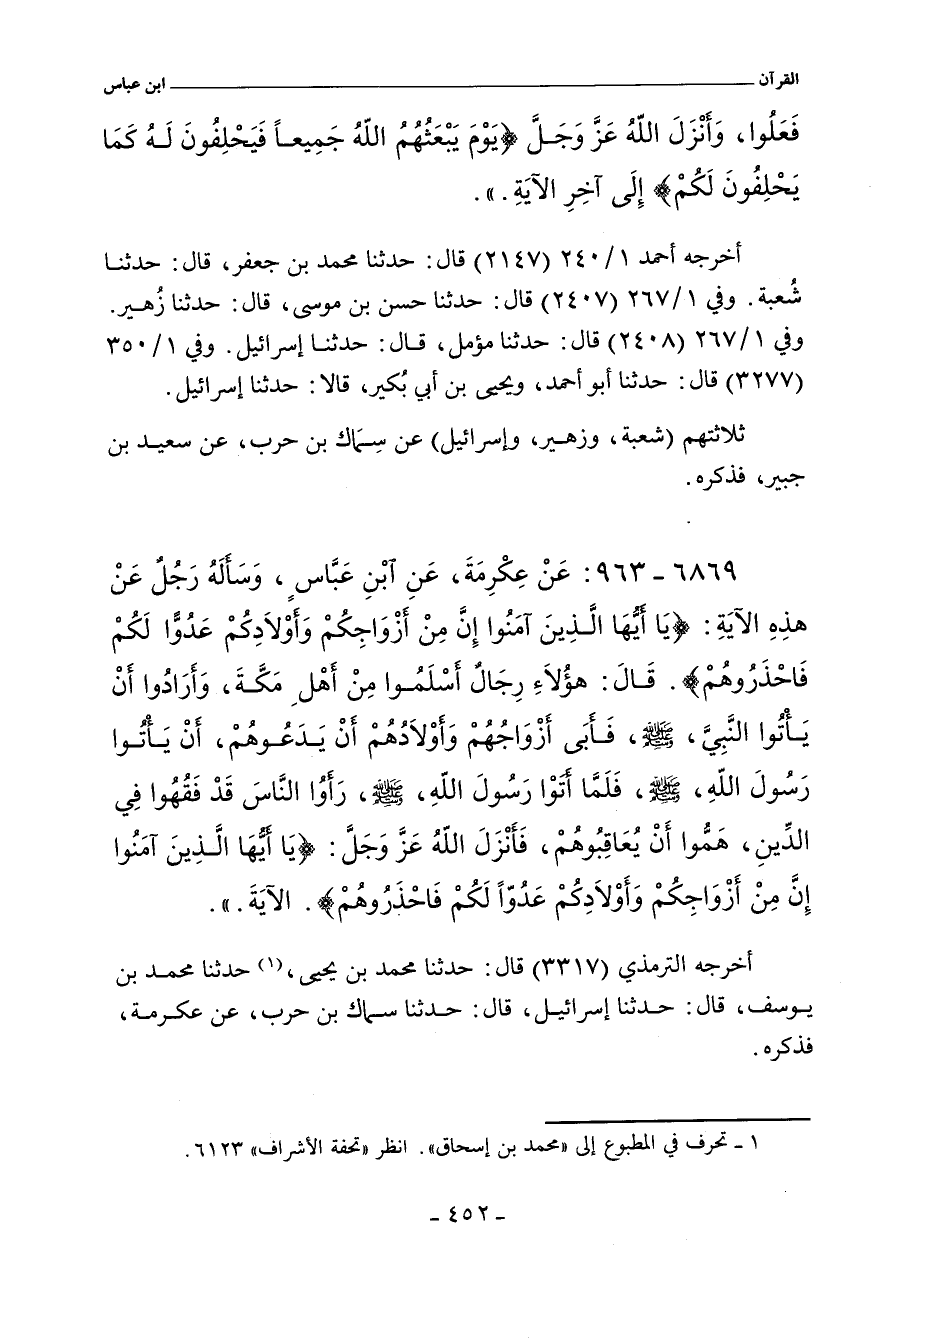 القرآن ــــــــــــــــــــ ابن عباس
فَعَلُوا، وَأَنْزَلَ اللَّهُ عَزَّ وَجَلَّ ﴿يَوْمَ يَبْعَثُهُمُ اللَّهُ جَمِيعاً فَيَحْلِفُونَ لَهُ كَمَا
يَحْلِفُونَ لَكُمْ﴾ إِلَى آخِرِ الآيَةِ.».
أخرجه أحمد ١/٢٤٠ (٢١٤٧) قال: حدثنا محمد بن جعفر، قال: حدثنا
شُعبة. وفي ١/٢٦٧ (٢٤٠٧) قال: حدثنا حسن بن موسى، قال: حدثنا زُهير.
وفي ١/٢٦٧ (٢٤٠٨) قال: حدثنا مؤمل، قال: حدثنا إسرائيل. وفي ١/٣٥٠
(٣٢٧٧) قال: حدثنا أبو أحمد، ويحيى بن أبي بُكير، قالا: حدثنا إسرائيل.
ثلاثتهم (شعبة، وزهير، وإسرائيل) عن سِمَاك بن حرب، عن سعيد بن
جبير، فذكره.
٦٨٦٩ - ٩٦٣: عَنْ عِكْرِمَةَ، عَنِ ٱبْنِ عَبَّاسٍ، وَسَأَلَهُ رَجُلٌ عَنْ
هذِهِ الآيَةِ: ﴿يَا أَيُّهَا الَّذِينَ آمَنُوا إِنَّ مِنْ أَزْوَاجِكُمْ وَأَوْلَادِكُمْ عَدُوًّا لَكُمْ
فَاحْذَرُوهُمْ﴾. قَالَ: هؤُلَاءِ رِجَالٌ أَسْلَمُوا مِنْ أَهْلِ مَكَّةَ، وَأَرَادُوا أَنْ
يَأْتُوا النَّبِيَّ، ﷺ، فَأَبَى أَزْوَاجُهُمْ وَأَوْلَادُهُمْ أَنْ يَدَعُوهُمْ، أَنْ يَأْتُوا
رَسُولَ اللَّهِ، ﷺ، فَلَمَّا أَتَوْا رَسُولَ اللَّهِ، ﷺ، رَأَوُا النَّاسَ قَدْ فَقُهُوا فِي
الدِّينِ، هَمُّوا أَنْ يُعَاقِبُوهُمْ، فَأَنْزَلَ اللَّهُ عَزَّ وَجَلَّ: ﴿يَا أَيُّهَا الَّذِينَ آمَنُوا
إِنَّ مِنْ أَزْوَاجِكُمْ وَأَوْلَادِكُمْ عَدُوّاً لَكُمْ فَاحْذَرُوهُمْ﴾. الآيَةَ.».
أخرجه الترمذي (٣٣١٧) قال: حدثنا محمد بن يحيى،(١) حدثنا محمد بن
يوسف، قال: حدثنا إسرائيل، قال: حدثنا سماك بن حرب، عن عكرمة،
فذكره.
١ - تحرف في المطبوع إلى «محمد بن إسحاق». انظر «تحفة الأشراف» ٦١٢٣.
- ٤٥٢ -